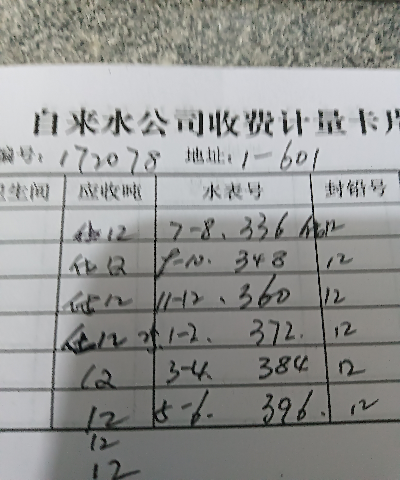 自来水公司收费计量卡片
编号: 172078 地址: 1-601
卫生间 应收吨 水表号 封铅号
估12 7-8. 336 估12
估12 9-10. 348 12
估12 11-12. 360 12
估12 1-2. 372. 12
12 3-4. 384 12
12 5-6. 396. 12
12
12